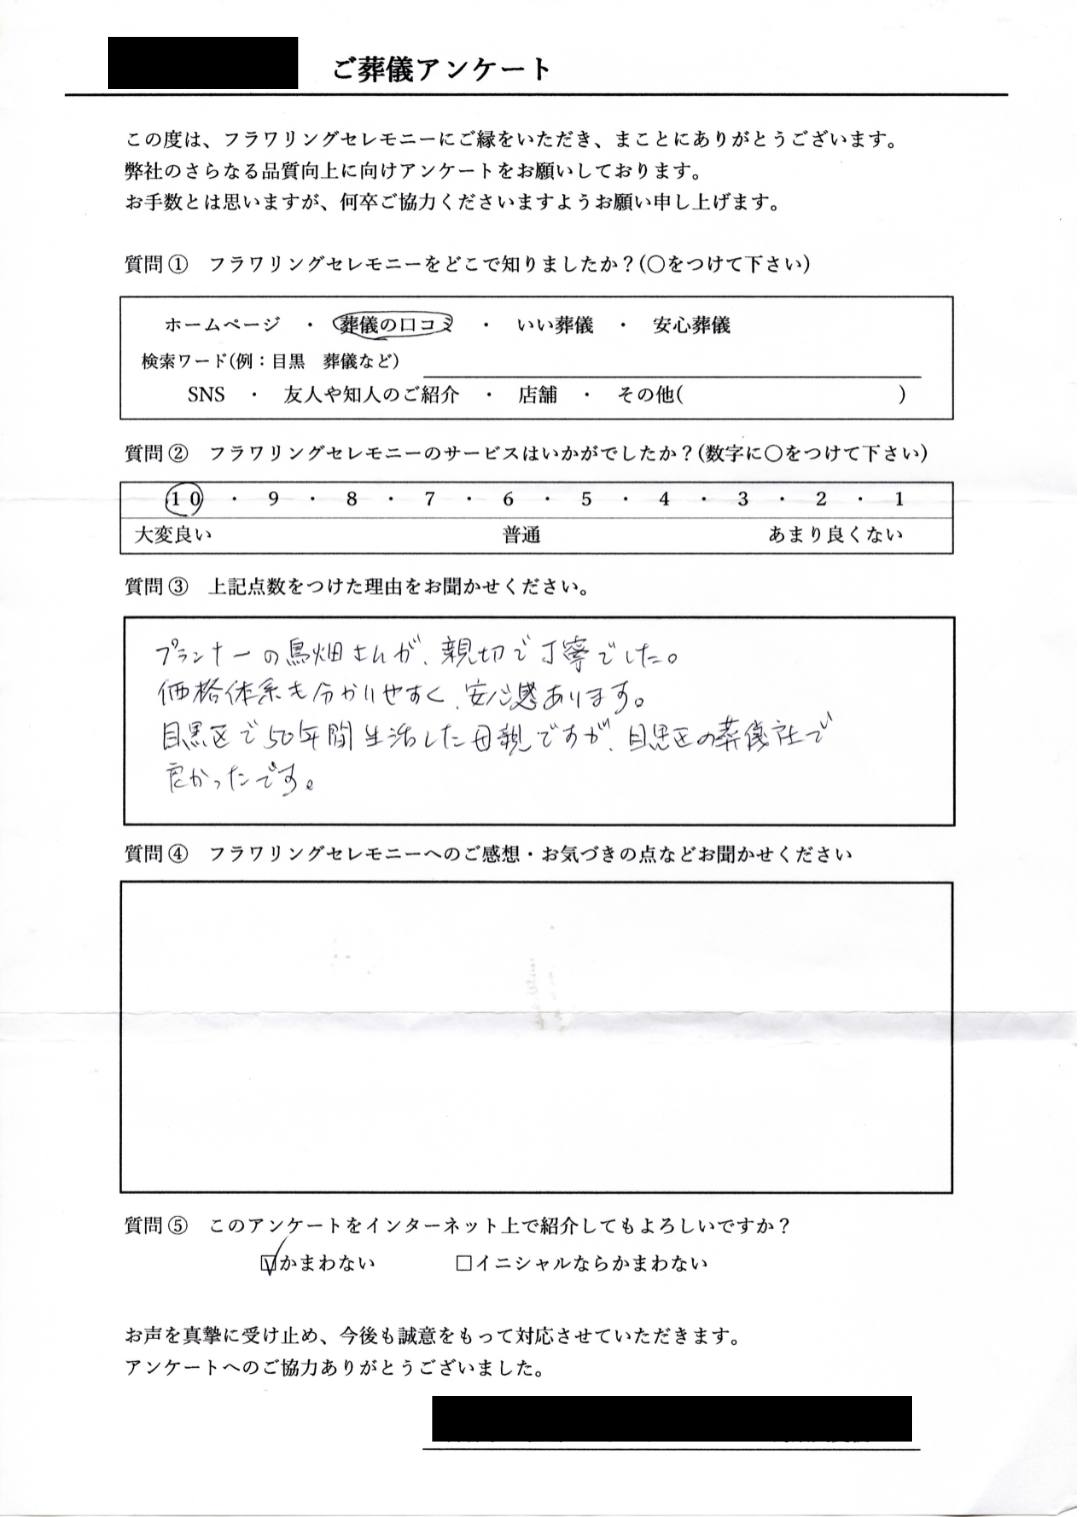 ご葬儀アンケート
この度は、フラワリングセレモニーにご縁をいただき、まことにありがとうございます。
弊社のさらなる品質向上に向けアンケートをお願いしております。
お手数とは思いますが、何卒ご協力くださいますようお願い申し上げます。
質問① フラワリングセレモニーをどこで知りましたか？(〇をつけて下さい)
ホームページ ・ 葬儀の口コミ ・ いい葬儀 ・ 安心葬儀
検索ワード(例：目黒 葬儀など)
SNS ・ 友人や知人のご紹介 ・ 店舗 ・ その他( )
質問② フラワリングセレモニーのサービスはいかがでしたか？(数字に〇をつけて下さい)
10 ・ 9 ・ 8 ・ 7 ・ 6 ・ 5 ・ 4 ・ 3 ・ 2 ・ 1
大変良い 普通 あまり良くない
質問③ 上記点数をつけた理由をお聞かせください。
プランナーの鳥畑さんが、親切で丁寧でした。
価格体系も分かりやすく、安心感あります。
目黒区で50年間生活した母親ですが、目黒区の葬儀社で
良かったです。
質問④ フラワリングセレモニーへのご感想・お気づきの点などお聞かせください
質問⑤ このアンケートをインターネット上で紹介してもよろしいですか？
☑かまわない □イニシャルならかまわない
お声を真摯に受け止め、今後も誠意をもって対応させていただきます。
アンケートへのご協力ありがとうございました。